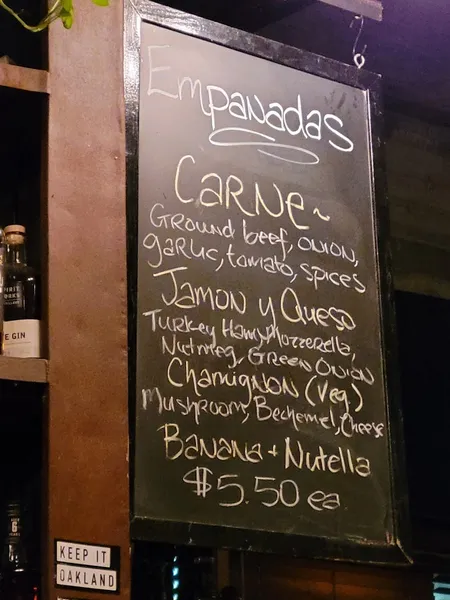 Empanadas
Carne~
Ground beef, onion,
garlic, tomato, spices
Jamon y Queso
Turkey Ham, Mozzerella,
Nutmeg, Green Onion
Chamignon (Veg)
Mushroom, Bechemel, Cheese
Banana + Nutella
$5.50 ea
GIN
KEEP IT
OAKLAND
6